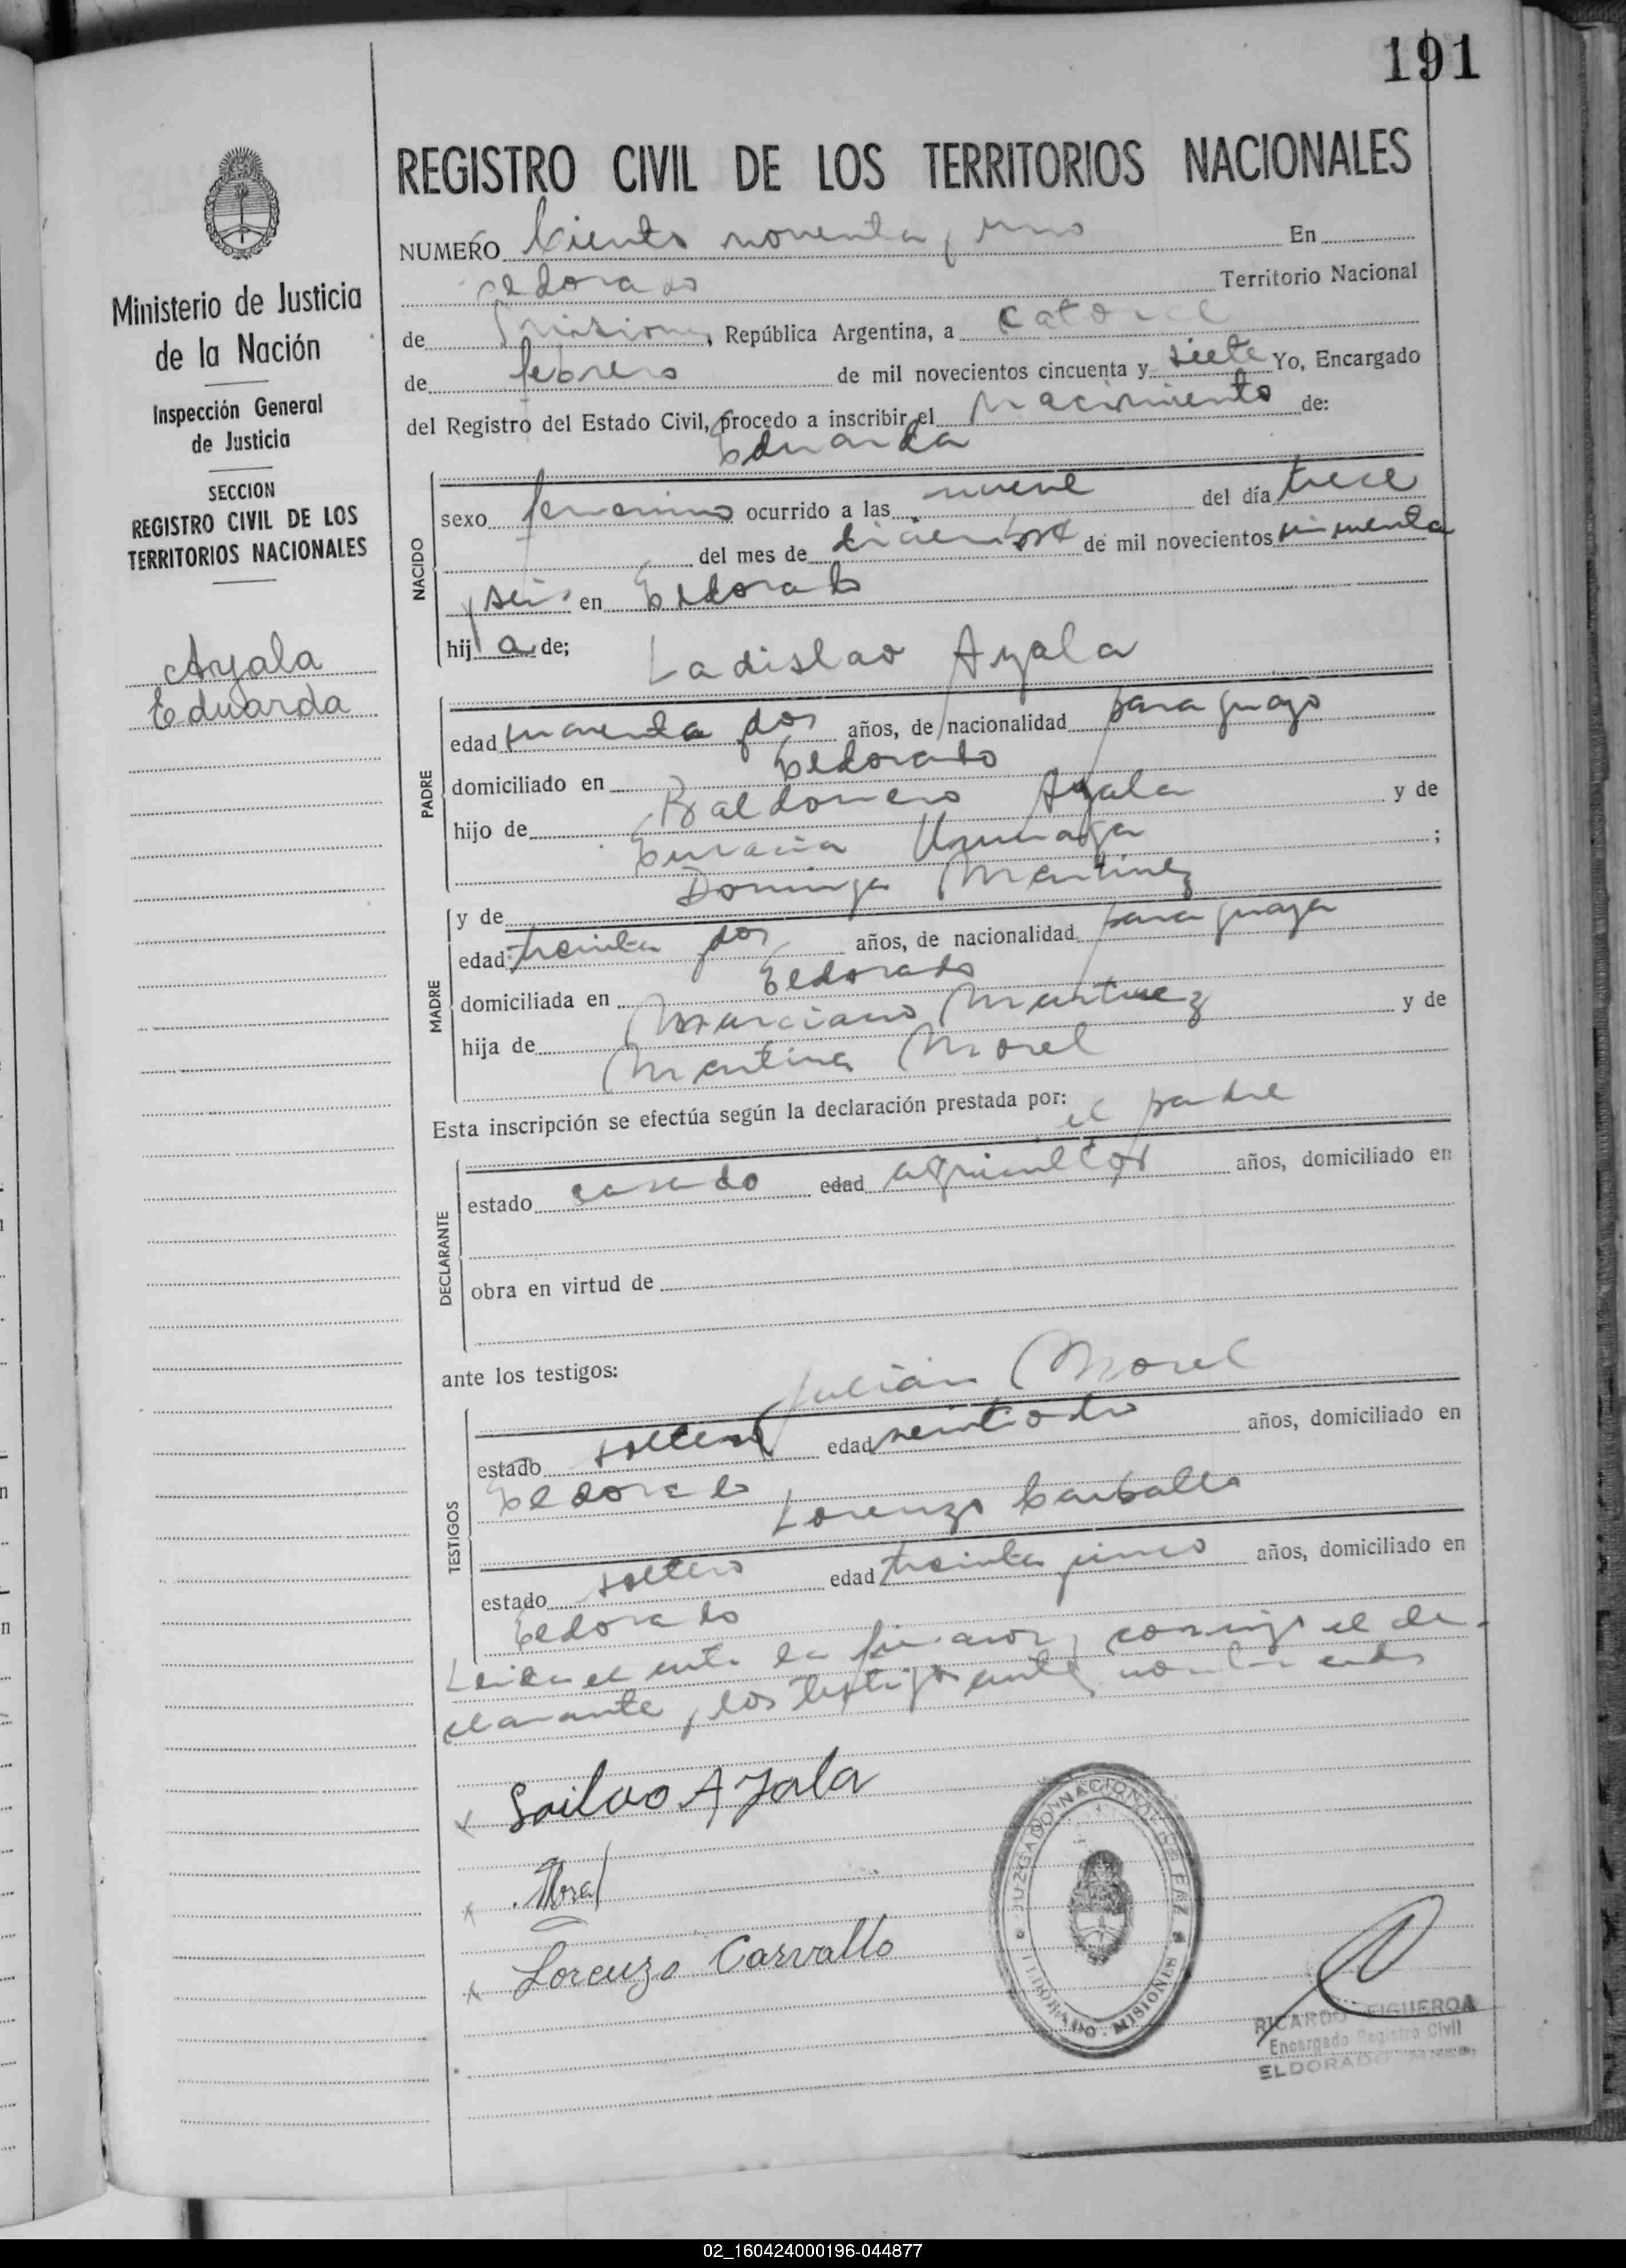 191
REGISTRO CIVIL DE LOS TERRITORIOS NACIONALES
Ministerio de Justicia
de la Nación
Inspección General
de Justicia
SECCION
REGISTRO CIVIL DE LOS
TERRITORIOS NACIONALES
Ayala
Eduarda
NUMERO Ciento noventa y uno En
eldorado Territorio Nacional
de Misiones, República Argentina, a catorce
de febrero de mil novecientos cincuenta y siete Yo, Encargado
del Registro del Estado Civil, procedo a inscribir el nacimiento de:
Eduarda
NACIDO
sexo femenino ocurrido a las nueve del día trece
del mes de diciembre de mil novecientos cincuenta
y seis en Eldorado
hij a de; Ladislao Ayala
PADRE
edad cuarenta y dos años, de nacionalidad paraguayo
domiciliado en Eldorado
hijo de Baldomero Ayala y de
;
y de Dominga Martinez
MADRE
edad treinta y dos años, de nacionalidad paraguaya
domiciliada en Eldorado
hija de Marciano Martinez y de
Martina Morel
Esta inscripción se efectúa según la declaración prestada por: el padre
DECLARANTE
estado casado edad agricultor años, domiciliado en
obra en virtud de
ante los testigos: Julián Morel
TESTIGOS
estado soltero edad veintiocho años, domiciliado en
Eldorado
Lorenzo Carballo
estado soltero edad treinta y cinco años, domiciliado en
Eldorado
Leida el acta la firmaron, conmigo el de-
clarante y los testigos antes nombrados
Ayala
Morel
Lorenzo Carvallo
JUZGADO NACIONAL DE PAZ
ELDORADO - MISIONES
RICARDO FIGUEROA
Encargado Registro Civil
ELDORADO
02_160424000196-044877